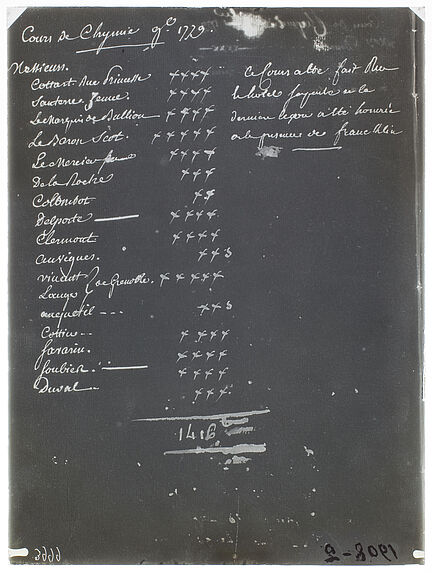 Cours de Chymie 9.e 1779.
Messieurs.
Cottart Rue Princesse ××××
Santerre Jeune ××××
Le Marquis de Bullion ××××
Le Baron Scot. ×××××
Le Mercier ××××
De la Roche ×××
Colombot ××
Delporte ××××
Clermont ××××
auvigues. ××3
vincent de Grenoble. ×××××
Lange
anquetil --- ××3
Cottin -- ××××
favarin. ××××
foubier. ××××
Duval -- ×××
1416
Ce Cours a été fait Rue
du hotel et la
derniere leçon a été honorée
de la presence de francklin
6663
1908-2